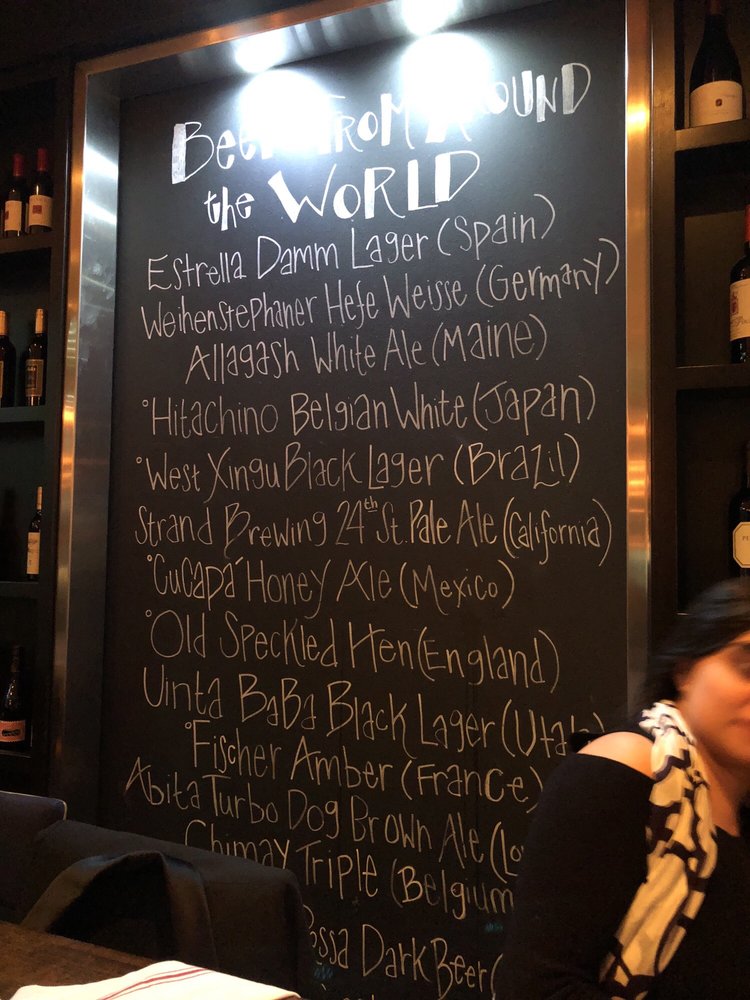 Beer From Around
the World
Estrella Damm Lager (Spain)
Weihenstephaner Hefe Weisse (Germany)
Allagash White Ale (Maine)
°Hitachino Belgian White (Japan)
°West Xingu Black Lager (Brazil)
Strand Brewing 24th St. Pale Ale (California)
°Cucapá Honey Ale (Mexico)
°Old Speckled Hen (England)
Uinta BaBa Black Lager (Utah)
°Fischer Amber (France)
Abita Turbo Dog Brown Ale (Lo
Chimay Triple (Belgium
ossa Dark Beer (